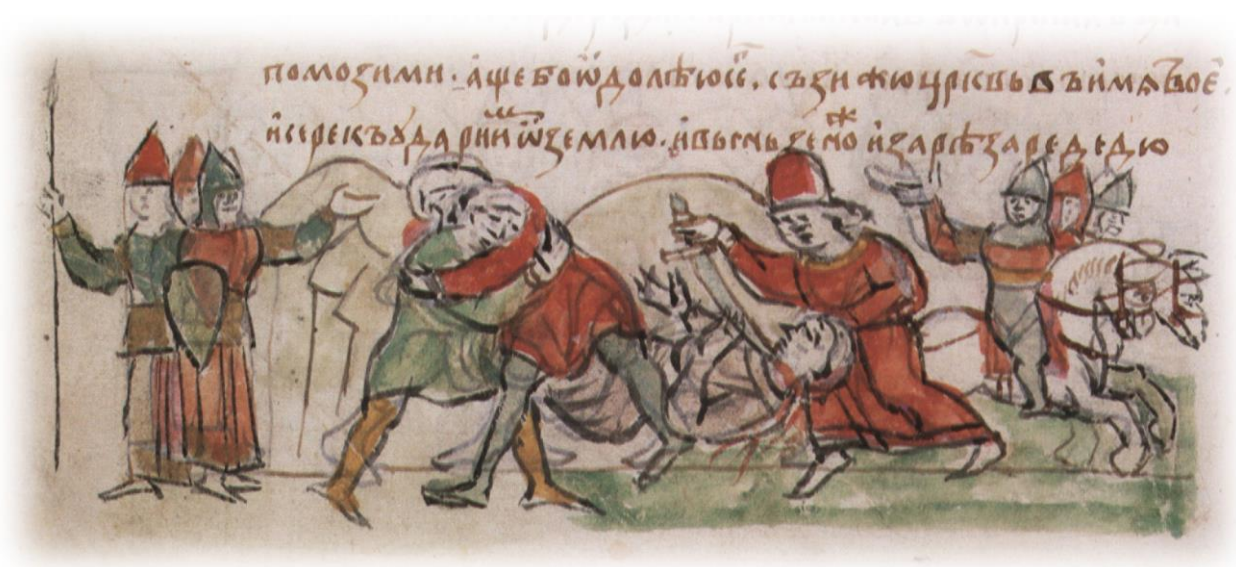 помозими · аще боѿдолѣюсє҃ · съзижюцр҃квьвъимѧтвоє ·
исерекъꙋдариї ѿземлю · ивыньзеножⷤ изарѣзаредедю